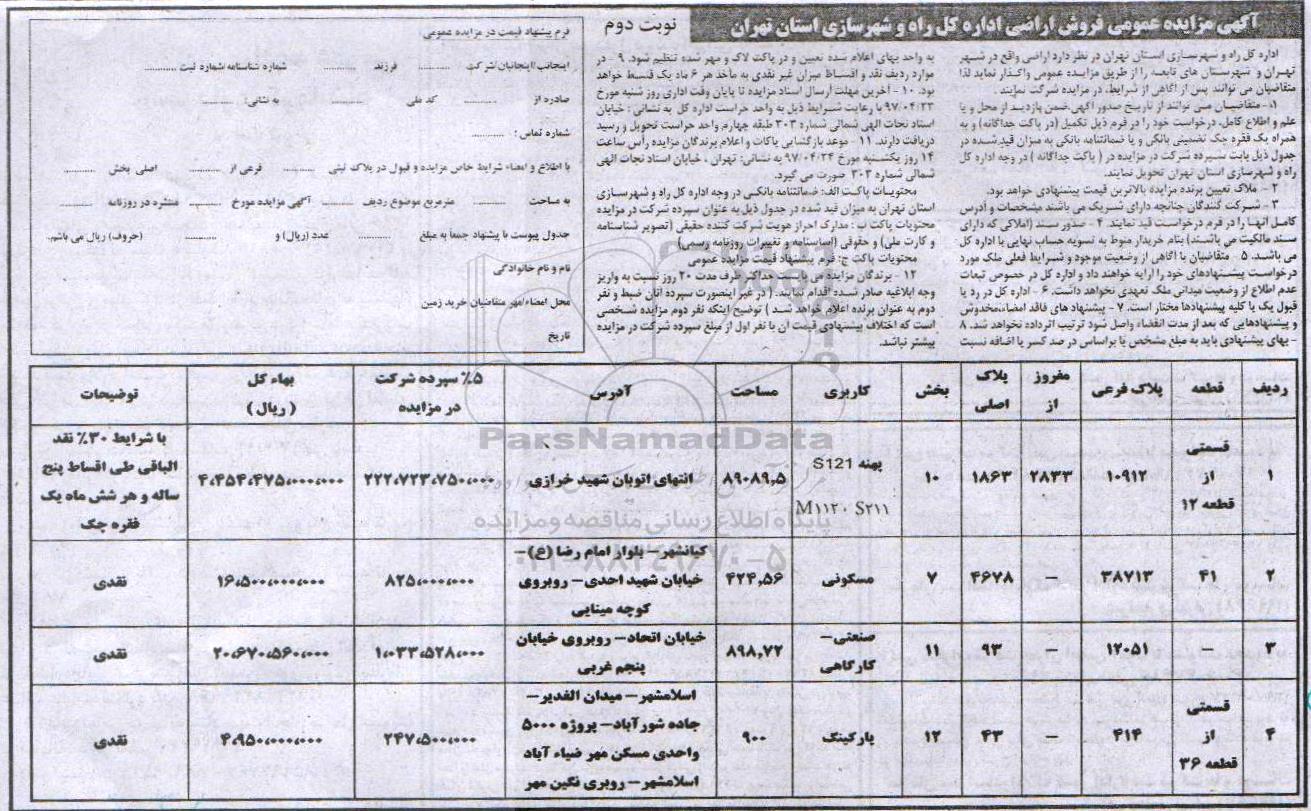 آگهی مزایده عمومی فروش اراضی اداره کل راه و شهرسازی استان تهران
نوبت دوم
اداره کل راه و شهرسازی استان تهران در نظر دارد اراضی واقع در شهر
تهران و شهرستان های تابعه را از طریق مزایده عمومی واگذار نماید لذا
متقاضیان می توانند پس از آگاهی از شرایط، در مزایده شرکت نمایند.
۱- متقاضیان می توانند از تاریخ صدور آگهی، ضمن بازدید از محل و با
علم و اطلاع کامل، درخواست خود را در فرم ذیل تکمیل (در پاکت جداگانه) و به
همراه یک فقره چک تضمینی بانکی و یا ضمانتنامه بانکی به میزان قید شده در
جدول ذیل بابت سپرده شرکت در مزایده در ( پاکت جداگانه ) در وجه اداره کل
راه و شهرسازی استان تهران تحویل نمایند.
۲- ملاک تعیین برنده مزایده بالاترین قیمت پیشنهادی خواهد بود.
۳- شرکت کنندگان چنانچه دارای شریک می باشند مشخصات و آدرس
کامل آنها را در فرم درخواست قید نمایند. ۴- صدور سند (املاکی که دارای
سند مالکیت می باشند) بنام خریدار منوط به تسویه حساب نهایی با اداره کل
می باشد. ۵- متقاضیان با آگاهی از وضعیت موجود و شرایط فعلی ملک مورد
درخواست پیشنهادهای خود را ارایه خواهند داد و اداره کل در خصوص تبعات
عدم اطلاع از وضعیت میدانی ملک تعهدی نخواهد داشت. ۶- اداره کل در رد یا
قبول یک یا کلیه پیشنهادها مختار است. ۷- پیشنهاد های فاقد امضاء، مخدوش
و پیشنهادهایی که بعد از مدت انقضاء واصل شود ترتیب اثر داده نخواهد شد. ۸
- بهای پیشنهادی باید به مبلغ مشخص یا براساس در صد کسر یا اضافه نسبت
به واحد بهای اعلام شده تعیین و در پاکت لاک و مهر شده تنظیم شود. ۹- در
موارد ردیف نقد و اقساط میزان غیر نقدی به مأخذ هر ۶ ماه یک قسط خواهد
بود. ۱۰- آخرین مهلت ارسال اسناد مزایده تا پایان وقت اداری روز شنبه مورخ
۹۷/۰۴/۲۳ با رعایت شرایط ذیل به واحد حراست اداره کل به نشانی: خیابان
استاد نجات الهی شمالی شماره ۳۰۳ طبقه چهارم واحد حراست تحویل و رسید
دریافت دارند. ۱۱- موعد بازگشایی پاکات و اعلام برندگان مزایده رأس ساعت
۱۴ روز یکشنبه مورخ ۹۷/۰۴/۲۴ به نشانی: تهران ، خیابان استاد نجات الهی
شمالی شماره ۳۰۳ صورت می گیرد.
محتویات پاکت الف: ضمانتنامه بانکی در وجه اداره کل راه و شهرسازی
استان تهران به میزان قید شده در جدول ذیل به عنوان سپرده شرکت در مزایده
محتویات پاکت ب: مدارک احراز هویت شرکت کننده حقیقی (تصویر شناسنامه
و کارت ملی) و حقوقی (اساسنامه و تغییرات روزنامه رسمی)
محتویات پاکت ج: فرم پیشنهاد قیمت مزایده عمومی
۱۲- برندگان مزایده می بایست حداکثر ظرف مدت ۲۰ روز نسبت به واریز
وجه ابلاغیه صادر شده اقدام نمایند. ( در غیر اینصورت سپرده آنان ضبط و نفر
دوم به عنوان برنده اعلام خواهد شد ) توضیح اینکه نفر دوم مزایده شخصی
است که اختلاف پیشنهادی قیمت آن با نفر اول از مبلغ سپرده شرکت در مزایده
بیشتر نباشد.
فرم پیشنهاد قیمت در مزایده عمومی:
اینجانب/اینجانبان/شرکت .......... فرزند .......... شماره شناسنامه/شماره ثبت ..........
صادره از .......... کد ملی .......... به نشانی: ..........
شماره تماس: ..........
با اطلاع و امضاء شرایط خاص مزایده و قبول در پلاک ثبتی .......... فرعی از .......... اصلی بخش ..........
به مساحت .......... مترمربع موضوع ردیف .......... آگهی مزایده مورخ .......... منتشره در روزنامه ..........
جدول پیوست با پیشنهاد جمعاً به مبلغ .......... عدد (ریال) و .......... (حروف) ریال می باشم.
نام و نام خانوادگی
محل امضاء/مهر متقاضیان خرید زمین
تاریخ
ردیف قطعه پلاک فرعی مفروز از پلاک اصلی بخش کاربری مساحت آدرس ۵٪ سپرده شرکت در مزایده بهاء کل (ریال) توضیحات
۱ قسمتی از قطعه ۱۲ ۱۰۹۱۲ ۲۸۳۳ ۱۸۶۳ ۱۰ پهنه S121 M۱۱۲۰ S۲۱۱ ۸۹۰۸۹,۵ انتهای اتوبان شهید خرازی ۲۲۲،۷۲۳،۷۵۰،۰۰۰ ۴،۴۵۴،۴۷۵،۰۰۰،۰۰۰ با شرایط ۳۰٪ نقد الباقی طی اقساط پنج ساله و هر شش ماه یک فقره چک
۲ ۴۱ ۳۸۷۱۳ – ۴۶۷۸ ۷ مسکونی ۴۲۴,۵۶ کیانشهر– بلوار امام رضا (ع)– خیابان شهید احدی– روبروی کوچه مینایی ۸۲۵،۰۰۰،۰۰۰ ۱۶،۵۰۰،۰۰۰،۰۰۰ نقدی
۳ – ۱۲۰۵۱ – ۹۳ ۱۱ صنعتی– کارگاهی ۸۹۸,۷۲ خیابان اتحاد– روبروی خیابان پنجم غربی ۱،۰۳۳،۵۲۸،۰۰۰ ۲۰،۶۷۰،۵۶۰،۰۰۰ نقدی
۴ قسمتی از قطعه ۳۶ ۴۱۴ – ۴۳ ۱۲ پارکینگ ۹۰۰ اسلامشهر– میدان الغدیر– جاده شورآباد– پروژه ۵۰۰۰ واحدی مسکن مهر ضیاء آباد اسلامشهر– روبری نگین مهر ۲۴۷،۵۰۰،۰۰۰ ۴،۹۵۰،۰۰۰،۰۰۰ نقدی
ParsNamadData
پایگاه اطلاع رسانی مناقصه و مزایده
۰۲۱-۸۸۳۴۹۶۷۰-۵